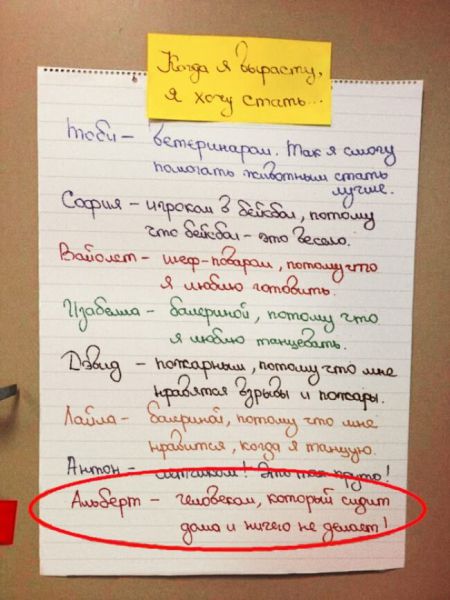 Когда я вырасту,
я хочу стать...
Тоби - ветеринаром. Так я смогу
помогать животным стать
лучше.
София - игроком в бейсбол, потому
что бейсбол - это весело.
Вайолет - шеф-поваром, потому что
я люблю готовить.
Изабелла - балериной, потому что
я люблю танцевать.
Дэвид - пожарным, потому что мне
нравятся взрывы и пожары.
Лайла - балериной, потому что мне
нравится, когда я танцую.
Антон - летчиком! Это так круто!
Альберт - человеком, который сидит
дома и ничего не делает!